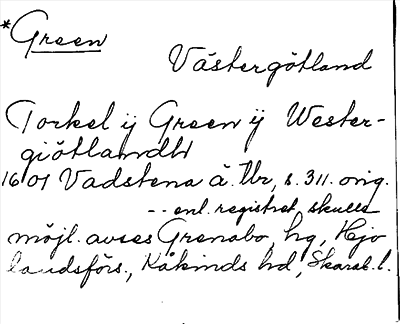 *Green
Västergötland
Torkel ij Green ij Wester-
giötlandh
1601 Vadstena ä. Tbr, s. 311. orig.
-- enl. registret skulle
möjl. avses Grenabo, hg, Hjo
landsförs., Kåkinds hd, Skarab. l.